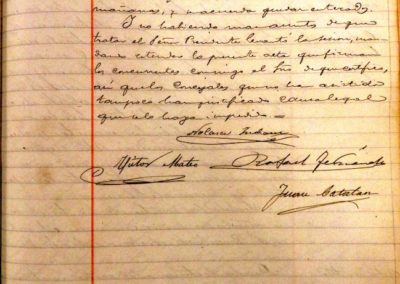 mañanas, y acuerda quedar enterado.
Y no habiendo mas asunto de que
tratar el Señor Presidente levantó la sesion, man
dando estender la presente acta que firman
los concurrentes conmigo el Srio de que certifico,
así que los Concejales que no han asistido
tampoco han justificado causa legal
que lo haga impedido.
Victor Mateo Rafael Fernández
Juan Catalan